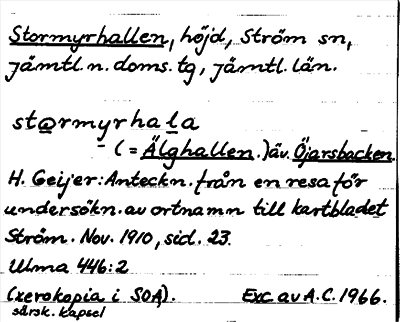 Stormyrhallen, höjd, Ström sn,
jämtl. n. doms. tg, jämtl. län.
st@rmyrhala
(= Älghallen.) äv. Öjarsbacken
H. Geijer: Anteckn. från en resa för
undersökn. av ortnamn till kartbladet
Ström. Nov. 1910, sid. 23.
Ulma 446:2
(xerokopia i SOA). Exc. av A.C. 1966.
särsk. kapsel